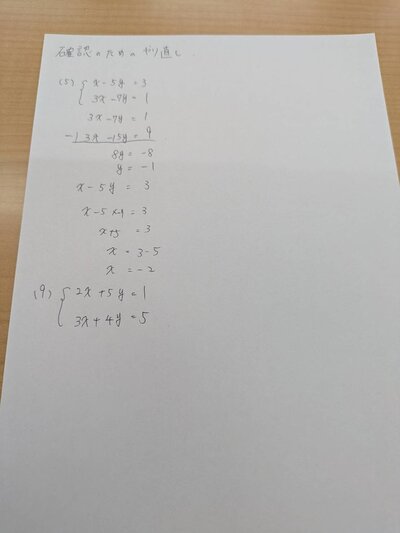 確認のためのやり直し.
(5) { x - 5y = 3
3x - 7y = 1
3x - 7y = 1
-) 3x - 15y = 9
8y = -8
y = -1
x - 5y = 3
x - 5 × -1 = 3
x + 5 = 3
x = 3 - 5
x = -2
(9) { 2x + 5y = 1
3x + 4y = 5